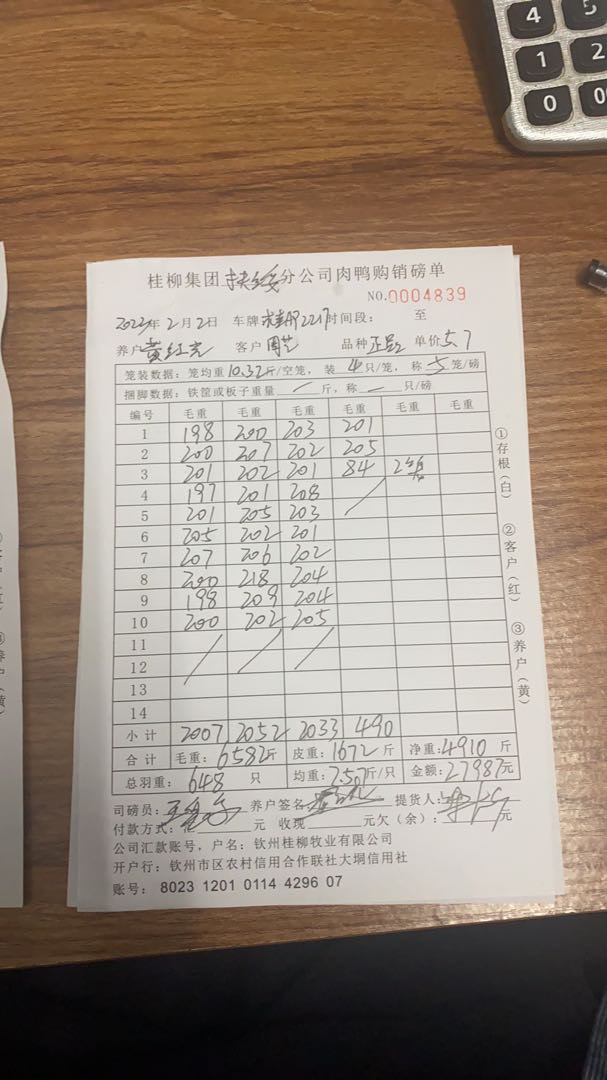 4 5
1 2
0 00
桂柳集团扶绥分公司肉鸭购销磅单
NO.0004839
2022年2月2日 车牌 2217时间段: 至
养户 客户 品种 单价5.7
笼装数据:笼均重10.32斤/空笼,装4只/笼,称5笼/磅
捆脚数据:铁筐或板子重量 斤,称 只/磅
编号 毛重 毛重 毛重 毛重 毛重 毛重
1 198 200 203 201
2 200 207 202 205
3 201 202 201 84 2笼
4 197 201 208
5 201 205 203
6 205 202 201
7 207 206 202
8 200 218 204
9 198 209 204
10 200 202 205
11
12
13
14
小计 2007 2052 2033 490
合计 毛重:6582斤 皮重:1672斤 净重:4910斤
总羽重:648只 均重:7.57斤/只 金额:27987元
司磅员: 养户签名 提货人:
付款方式: 元 收现 元欠(余): 元
公司汇款账号,户名:钦州桂柳牧业有限公司
开户行:钦州市区农村信用合作联社大垌信用社
账号: 8023 1201 0114 4296 07
①存根(白)
②客户(红)
③养户(黄)